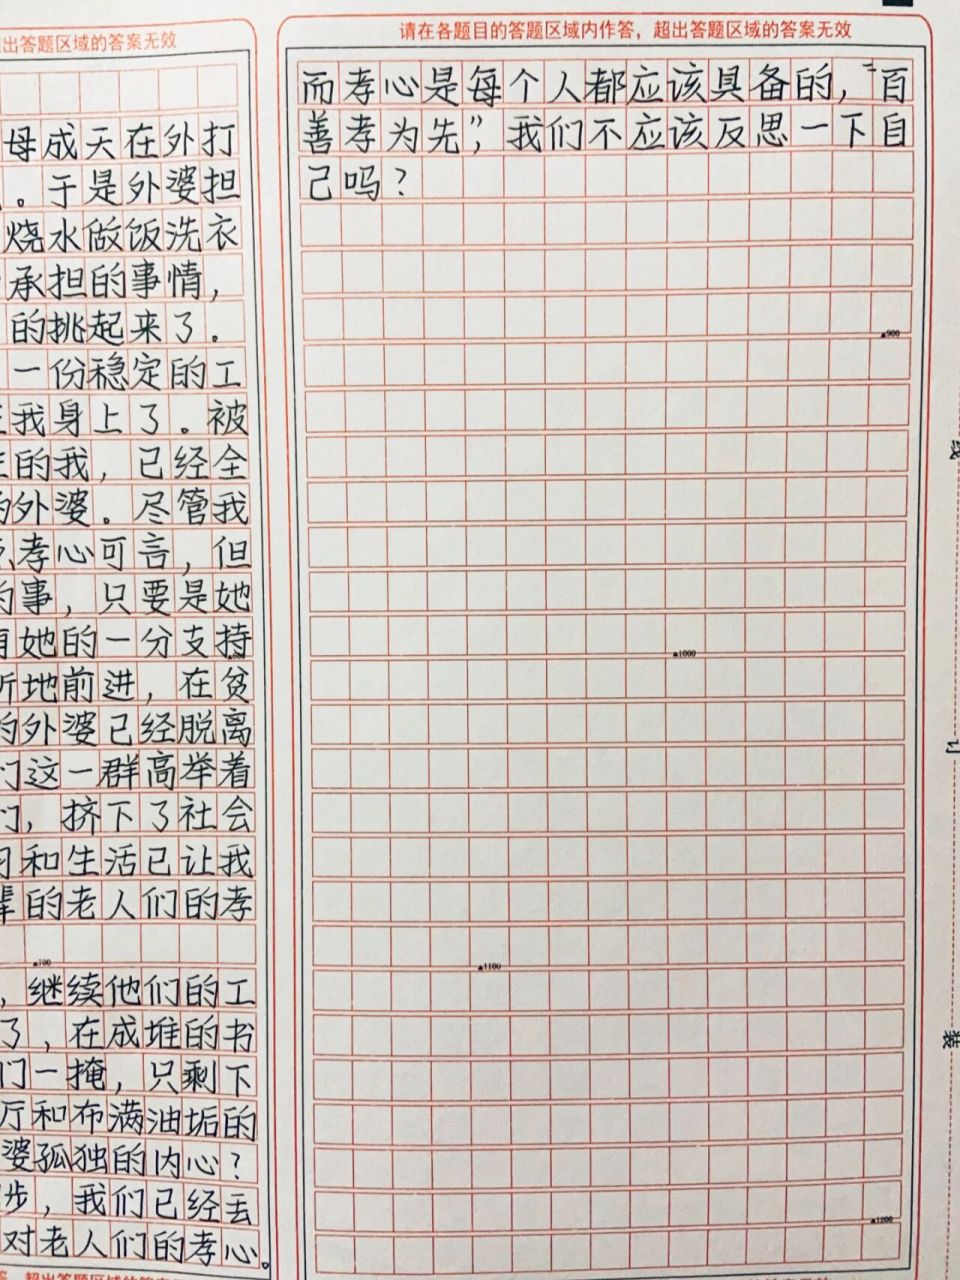 出答题区域的答案无效
母成天在外打
。于是外婆担
烧水做饭洗衣
承担的事情，
的挑起来了。
一份稳定的工
我身上了。被
的我，已经全
的外婆。尽管我
孝心可言，但
的事，只要是她
有她的一分支持
断地前进，在贫
的外婆已经脱离
们这一群高举着
们，挤下了社会
习和生活已让我
辈的老人们的孝
▲700
，继续他们的工
了，在成堆的书
门一掩，只剩下
厅和布满油垢的
婆孤独的内心？
步，我们已经丢
对老人们的孝心。
请在各题目的答题区域内作答，超出答题区域的答案无效
而孝心是每个人都应该具备的，“百
善孝为先”，我们不应该反思一下自
己吗？
▲900
▲1000
▲1100
▲1200
订
装